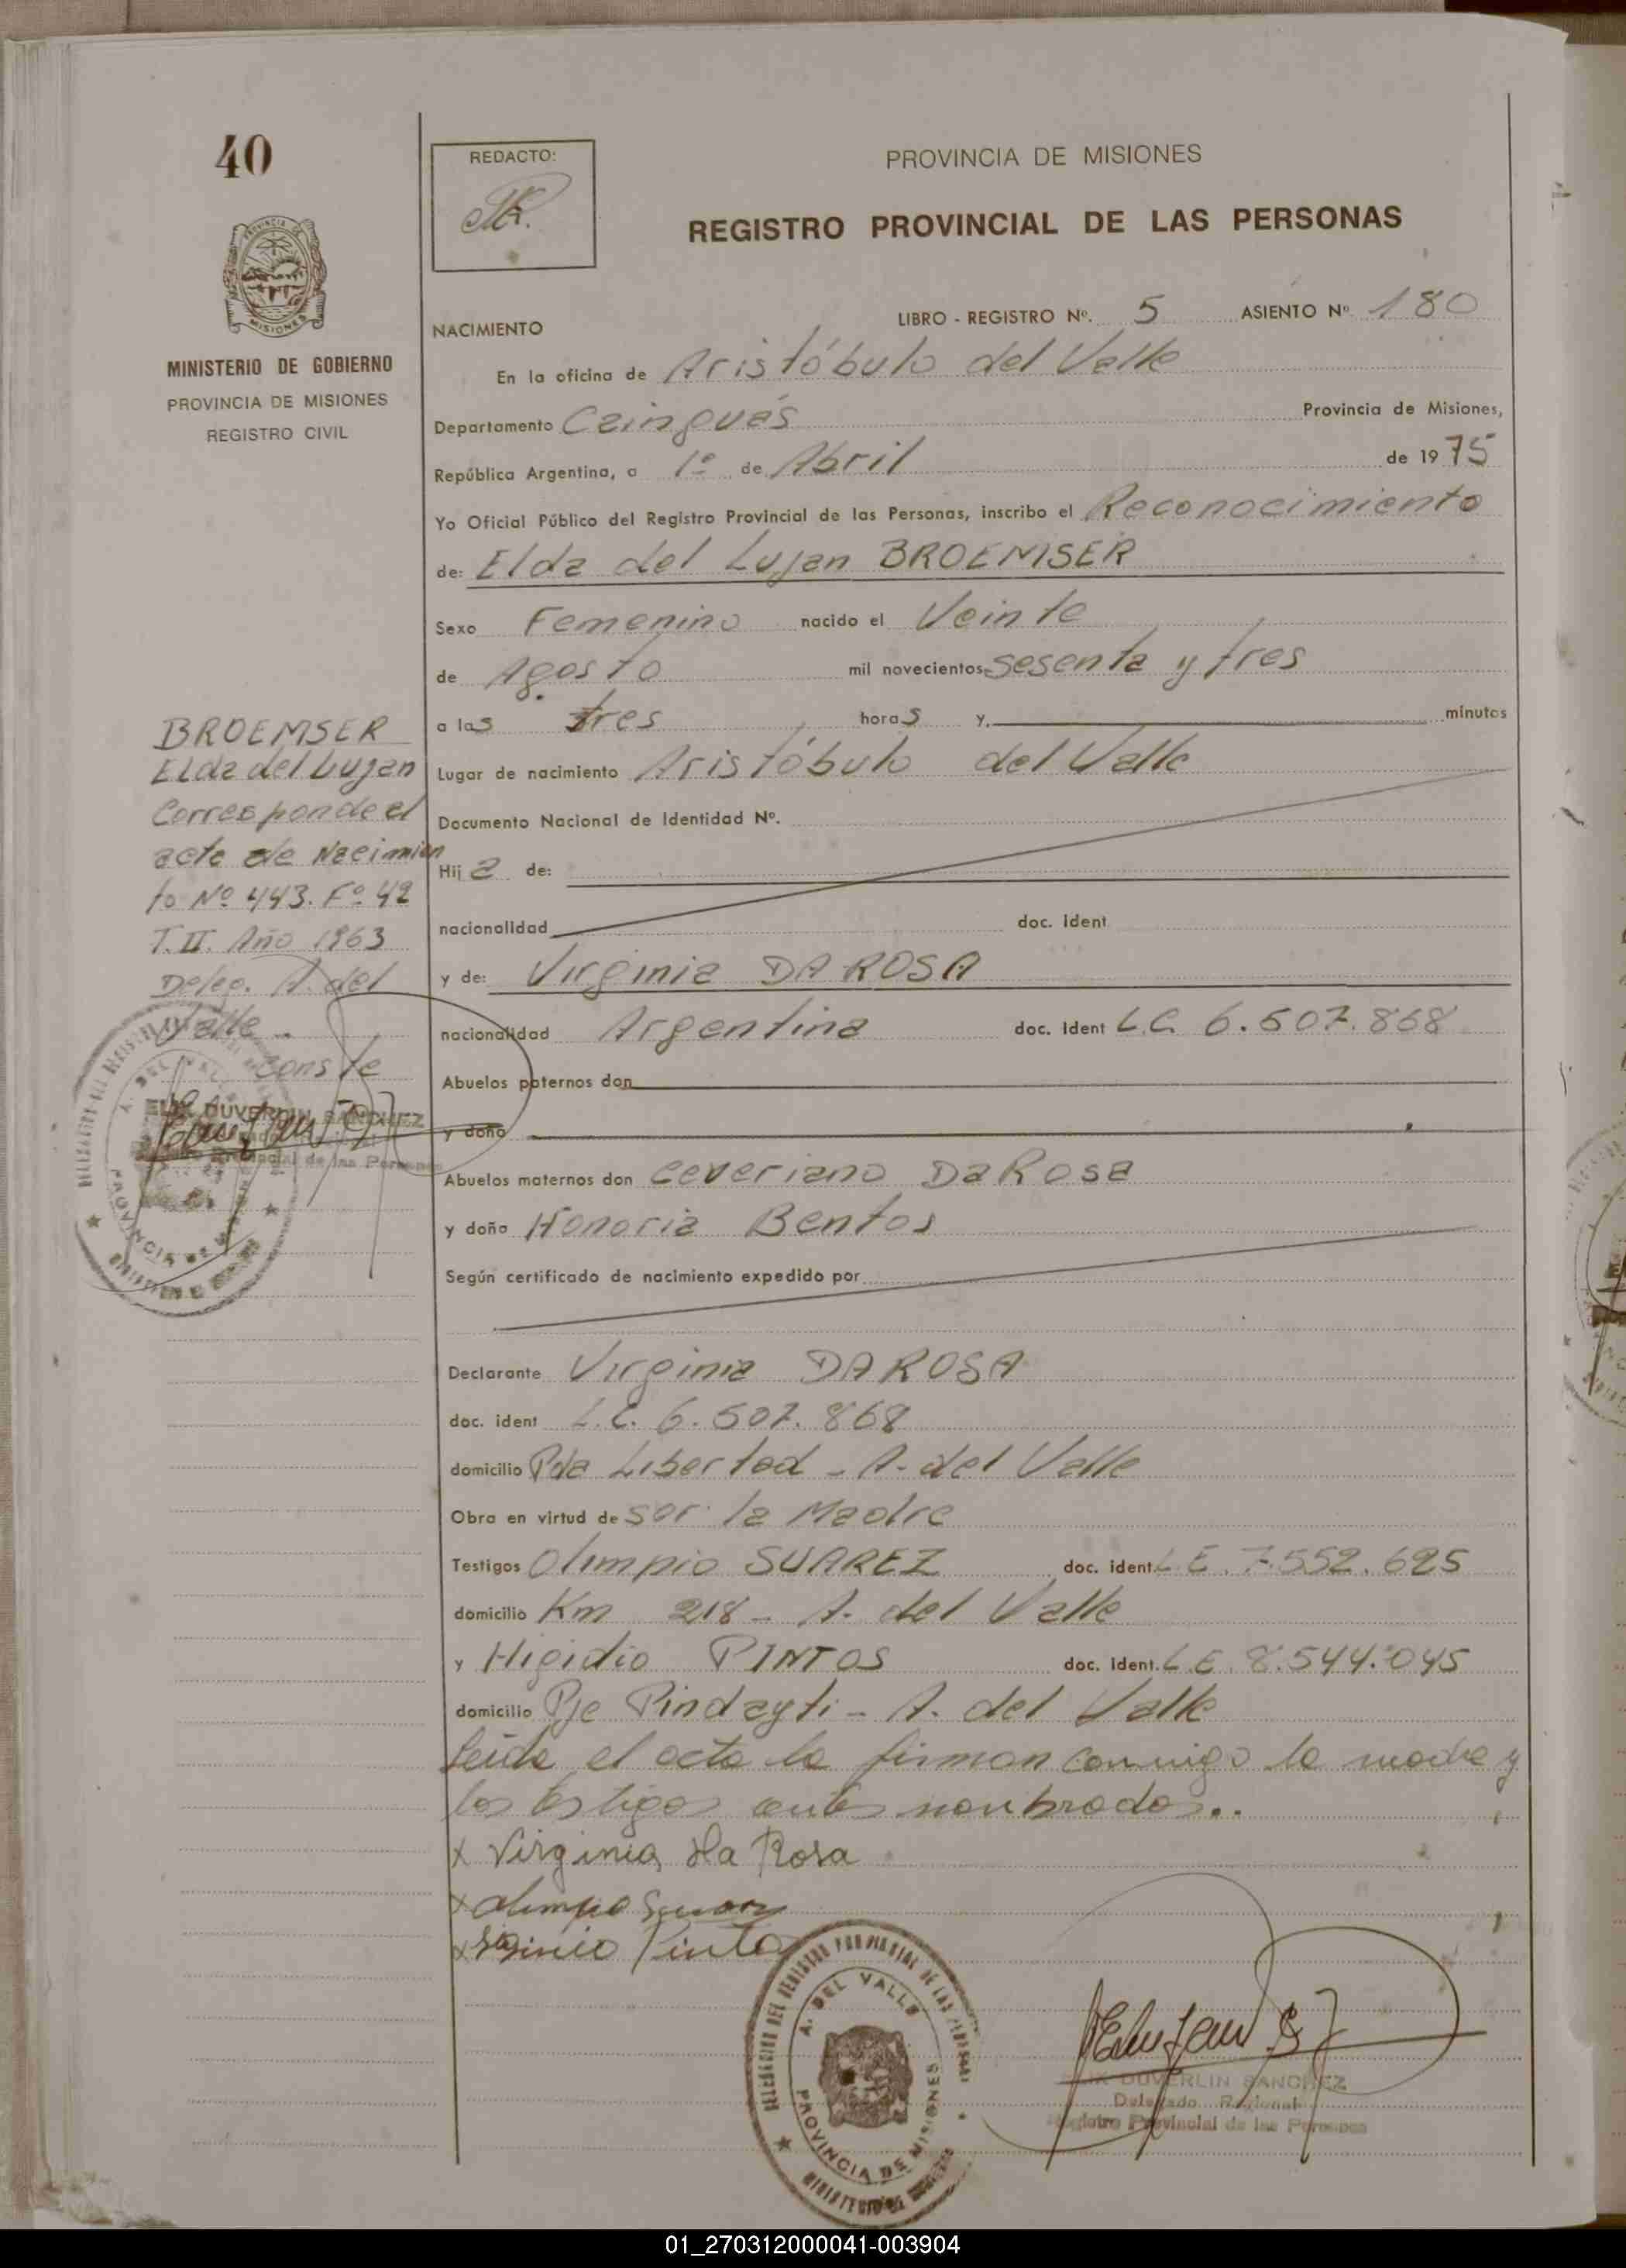 40
MINISTERIO DE GOBIERNO
PROVINCIA DE MISIONES
REGISTRO CIVIL
BROEMSER
Elda del Lujan
Corresponde al
acta de Nacimien
to Nº 443. Fº 42
T. II. Año 1963
Deleg. A. del
Valle
conste
REDACTO:
PROVINCIA DE MISIONES
REGISTRO PROVINCIAL DE LAS PERSONAS
LIBRO - REGISTRO Nº. 5 ASIENTO Nº. 180
NACIMIENTO
En la oficina de Aristóbulo del Valle
Departamento Cainguás Provincia de Misiones,
República Argentina, a 1º de Abril de 1975
Yo Oficial Público del Registro Provincial de las Personas, inscribo el Reconocimiento
de: Elda del Lujan BROEMSER
Sexo Femenino nacido el Veinte
de Agosto mil novecientos sesenta y tres
a las tres horas y. minutos
Lugar de nacimiento Aristóbulo del Valle
Documento Nacional de Identidad Nº.
Hija de:
nacionalidad doc. ident
y de: Virginia DA ROSA
nacionalidad Argentina doc. ident L.C. 6.607.868
Abuelos paternos don
y doña
Abuelos maternos don Ceveriano Da Rosa
y doña Honoria Bentos
Según certificado de nacimiento expedido por
Declarante Virginia DA ROSA
doc. ident L.C. 6.607.868
domicilio Pda Libertad - A. del Valle
Obra en virtud de ser la Madre
Testigos Olimpio SUAREZ doc. ident L.E. 7.552.625
domicilio Km 218 - A. del Valle
y Higidio PINTOS doc. ident. L.E. 8.544.045
domicilio Pje Pindayti - A. del Valle
Leída el acta la firman conmigo la madre y
los testigos antes nombrados..
x Virginia da Rosa
x Olimpio Suarez
x Pinto
DELEGACION DEL REGISTRO PROVINCIAL DE LAS PERSONAS
A. DEL VALLE
PROVINCIA DE MISIONES
DUVERLIN SANCHEZ
Delegado Regional
Registro Provincial de las Personas
01_270312000041-003904